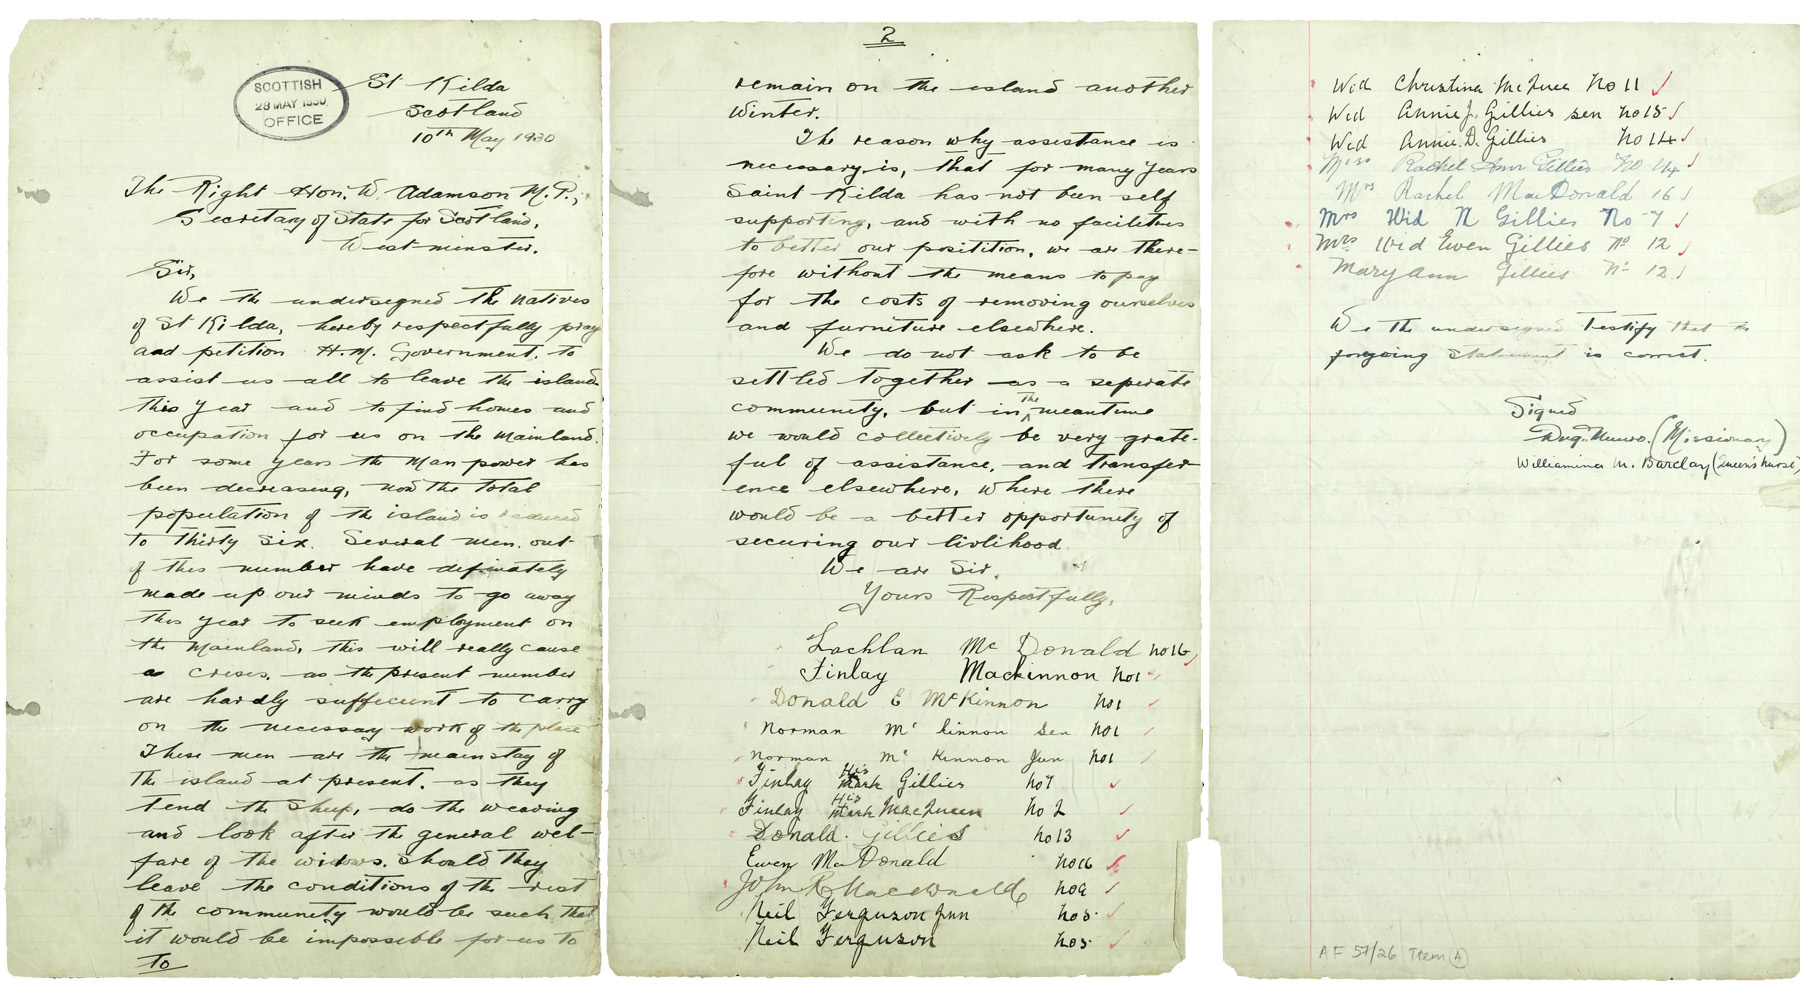 SCOTTISH
28 MAY 1930
OFFICE
St Kilda
Scotland
10th May 1930
The Right Hon. W. Adamson M.P.,
Secretary of State for Scotland,
Westminster.
Sir,
We the undersigned the natives
of St Kilda, hereby respectfully pray
and petition H.M. Government. to
assist us all to leave the island
this year and to find homes and
occupation for us on the mainland.
For some years the Man power has
been decreasing, now the total
population of the island is reduced
to thirty six. Several men. out
of this number have definately
made up our minds to go away
this year to seek employment on
the Mainland, this will really cause
a crises. as the present number
are hardly suffecient to carry
on the necessary work of the place
These men are the mainstay of
the island at present. as they
tend the sheep, do the weaving
and look after the general wel-
fare of the widows. Should they
leave the conditions of the rest
of the community would be such that
it would be impossible for us to
To
2
remain on the island another
winter.
The reason why assistance is
necessary is, that for many years
Saint Kilda has not been self
supporting, and with no facilities
to better our postition, we are there-
fore without the means to pay
for the costs of removing ourselves
and furniture elsewhere.
We do not ask to be
settled together as a seperate
community, but in the meantime
we would collectively be very grate-
ful of assistance, and transfer
ence elsewhere, where there
would be a better opportunity of
securing our livlihood
We are Sir,
Yours Respectfully,
Lachlan Mc Donald No 16
Finlay Mackinnon No 1
Donald E McKinnon No 1
Norman Mc kinnon Sen No 1
Norman Mc Kinnon Jun No 1
Finlay His Mark Gillies No 7
Finlay His Mark MacQueen No 2
Donald. Gillies No 13
Ewen MacDonald No 16
John R Macdonald No 9
Neil Ferguson Jun No 5
Neil Ferguson No 5
Wid Christina McQueen No 11
Wid Annie J. Gillies sen No 15
Wid Annie D. Gillies No 14
Miss Rachel Ann Gillies No 14
Mrs Rachel MacDonald 16
Mrs Wid N Gillies No 7
Mrs Wid Ewen Gillies No 12
Mary Ann Gillies No 12
We the undersigned testify that the
forgoing statement is correct.
Signed
Dug. Munro. (Missionary)
Williamina M. Barclay (Queen's Nurse)
AF 57/26 Item (A)